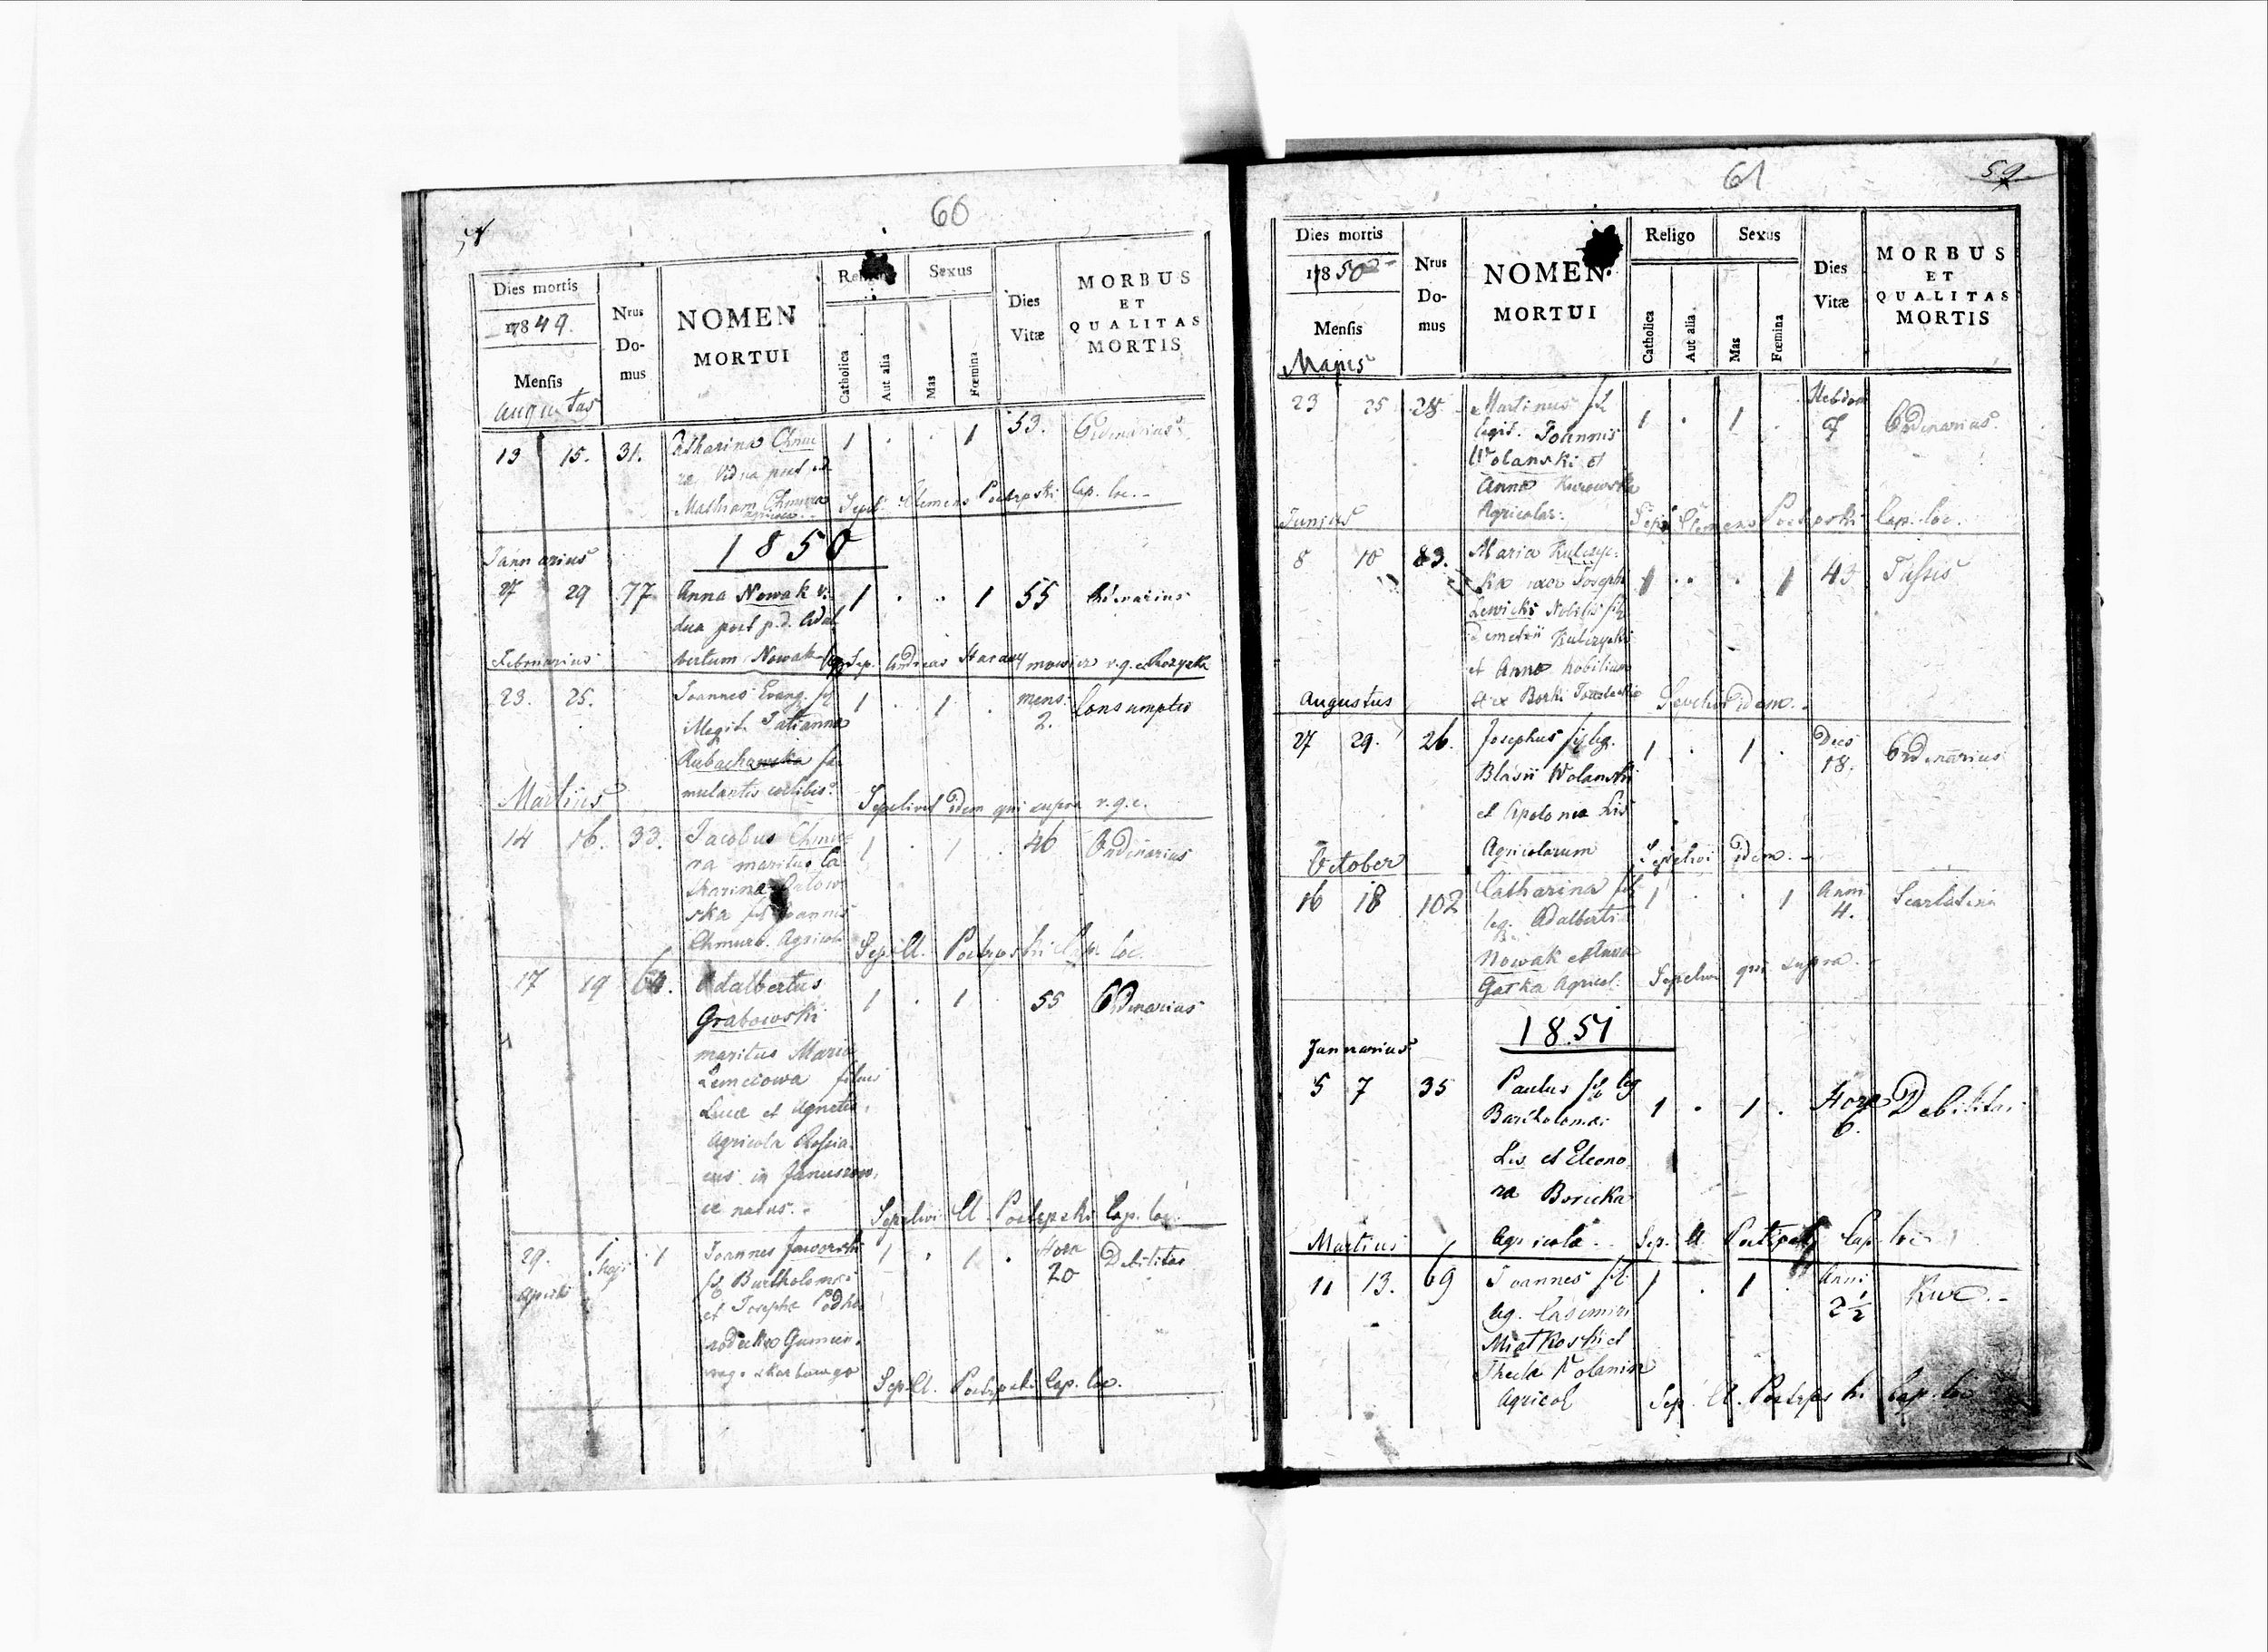 60
Dies mortis
1849.
Mensis
Augustus
Nrus
Do-
mus
NOMEN
MORTUI
Religio
Catholica
Aut alia
Sexus
Mas
Fœmina
Dies
Vitæ
MORBUS
ET
QUALITAS
MORTIS
13 15. 31. Catharina Chmu 1 . . 1 53. Ordinarius
ra Vidua post
Mathiam Chmura Sepel. Clemens Cap. loc.
agricola
1850
Januarius
27 29 77 Anna Nowak vi 1 . . 1 55 Ordinarius
dua post p.d. Adal
Februarius bertum Nowak Sep. Andreas r.g.c.
23. 25. Joannes Evang. fil 1 . 1 . mens. 2. Consumptio
illegit. Tatianna
Rubachowska fa
mulantis coelibis
Martius Sepelivit idem qui supra r.g.c.
14 16. 33. Jacobus Chmu 1 . 1 . 46 Ordinarius
ra maritus Ca
tharina
ska fil Joannis
Chmura Agricola Sep. Cl. Cap. loc.
17 19 64. Adalbertus 1 . 1 . 55 Ordinarius
Grabowski
maritus Maria
filius
Lucæ et Agnetis
Agricola
in
natus. Sepelivi Cl. Cap. loc.
29. 1 Maji 1 Joannes Jaworski 1 . 1 . Hora 20 Debilitas
Aprilis fil Bartholomæi
et Josepha Podho
rodecka Gumien
nego skarbowego Sep. Cl. Cap. loc.
61
59
Dies mortis
1850
Mensis
Majus
Nrus
Do-
mus
NOMEN
MORTUI
Religo
Catholica
Aut alia
Sexus
Mas
Fœmina
Dies
Vitæ
MORBUS
ET
QUALITAS
MORTIS
23 25 28 Martinus fil 1 . 1 . Hebdom Ordinarius
legit. Joannis
Wolanski et
Anna Kurowska
Junius Agricolar. Sep. Clemens Cap. loc.
8 10 83. Maria Kulczyc 1 . . 1 43 Tussis
ka uxor Joseph
Lewicki Nobilis fil
Demetrii Kulczycki
et Anna nobilium
Augustus Sepelivi idem.
27 29. 26. Josephus fil leg. 1 . 1 . Dies 18. Ordinarius
Blasii Wolanski
et Apolonia Lis
October Agricolarum Sepelivi idem.
16 18 102 Catharina fil 1 . . 1 Anni 4. Scarlatina
leg. Adalberti
Nowak et Anna
Garka Agricol. Sepelivi qui supra.
1851
Januarius
5 7 35 Paulus fil leg 1 . 1 . Hora 6. Debilitas
Bartholomæi
Lis et Eleono
ra Boricka
Martius Agricola Sep. Cl. Cap. loci
11 13. 69 Joannes fil 1 . 1 . Anni 2½ Kur.
leg. Casimiri
Miatkoski et
Thecla Wolanin
Agricol Sep. Cl. Cap. loc